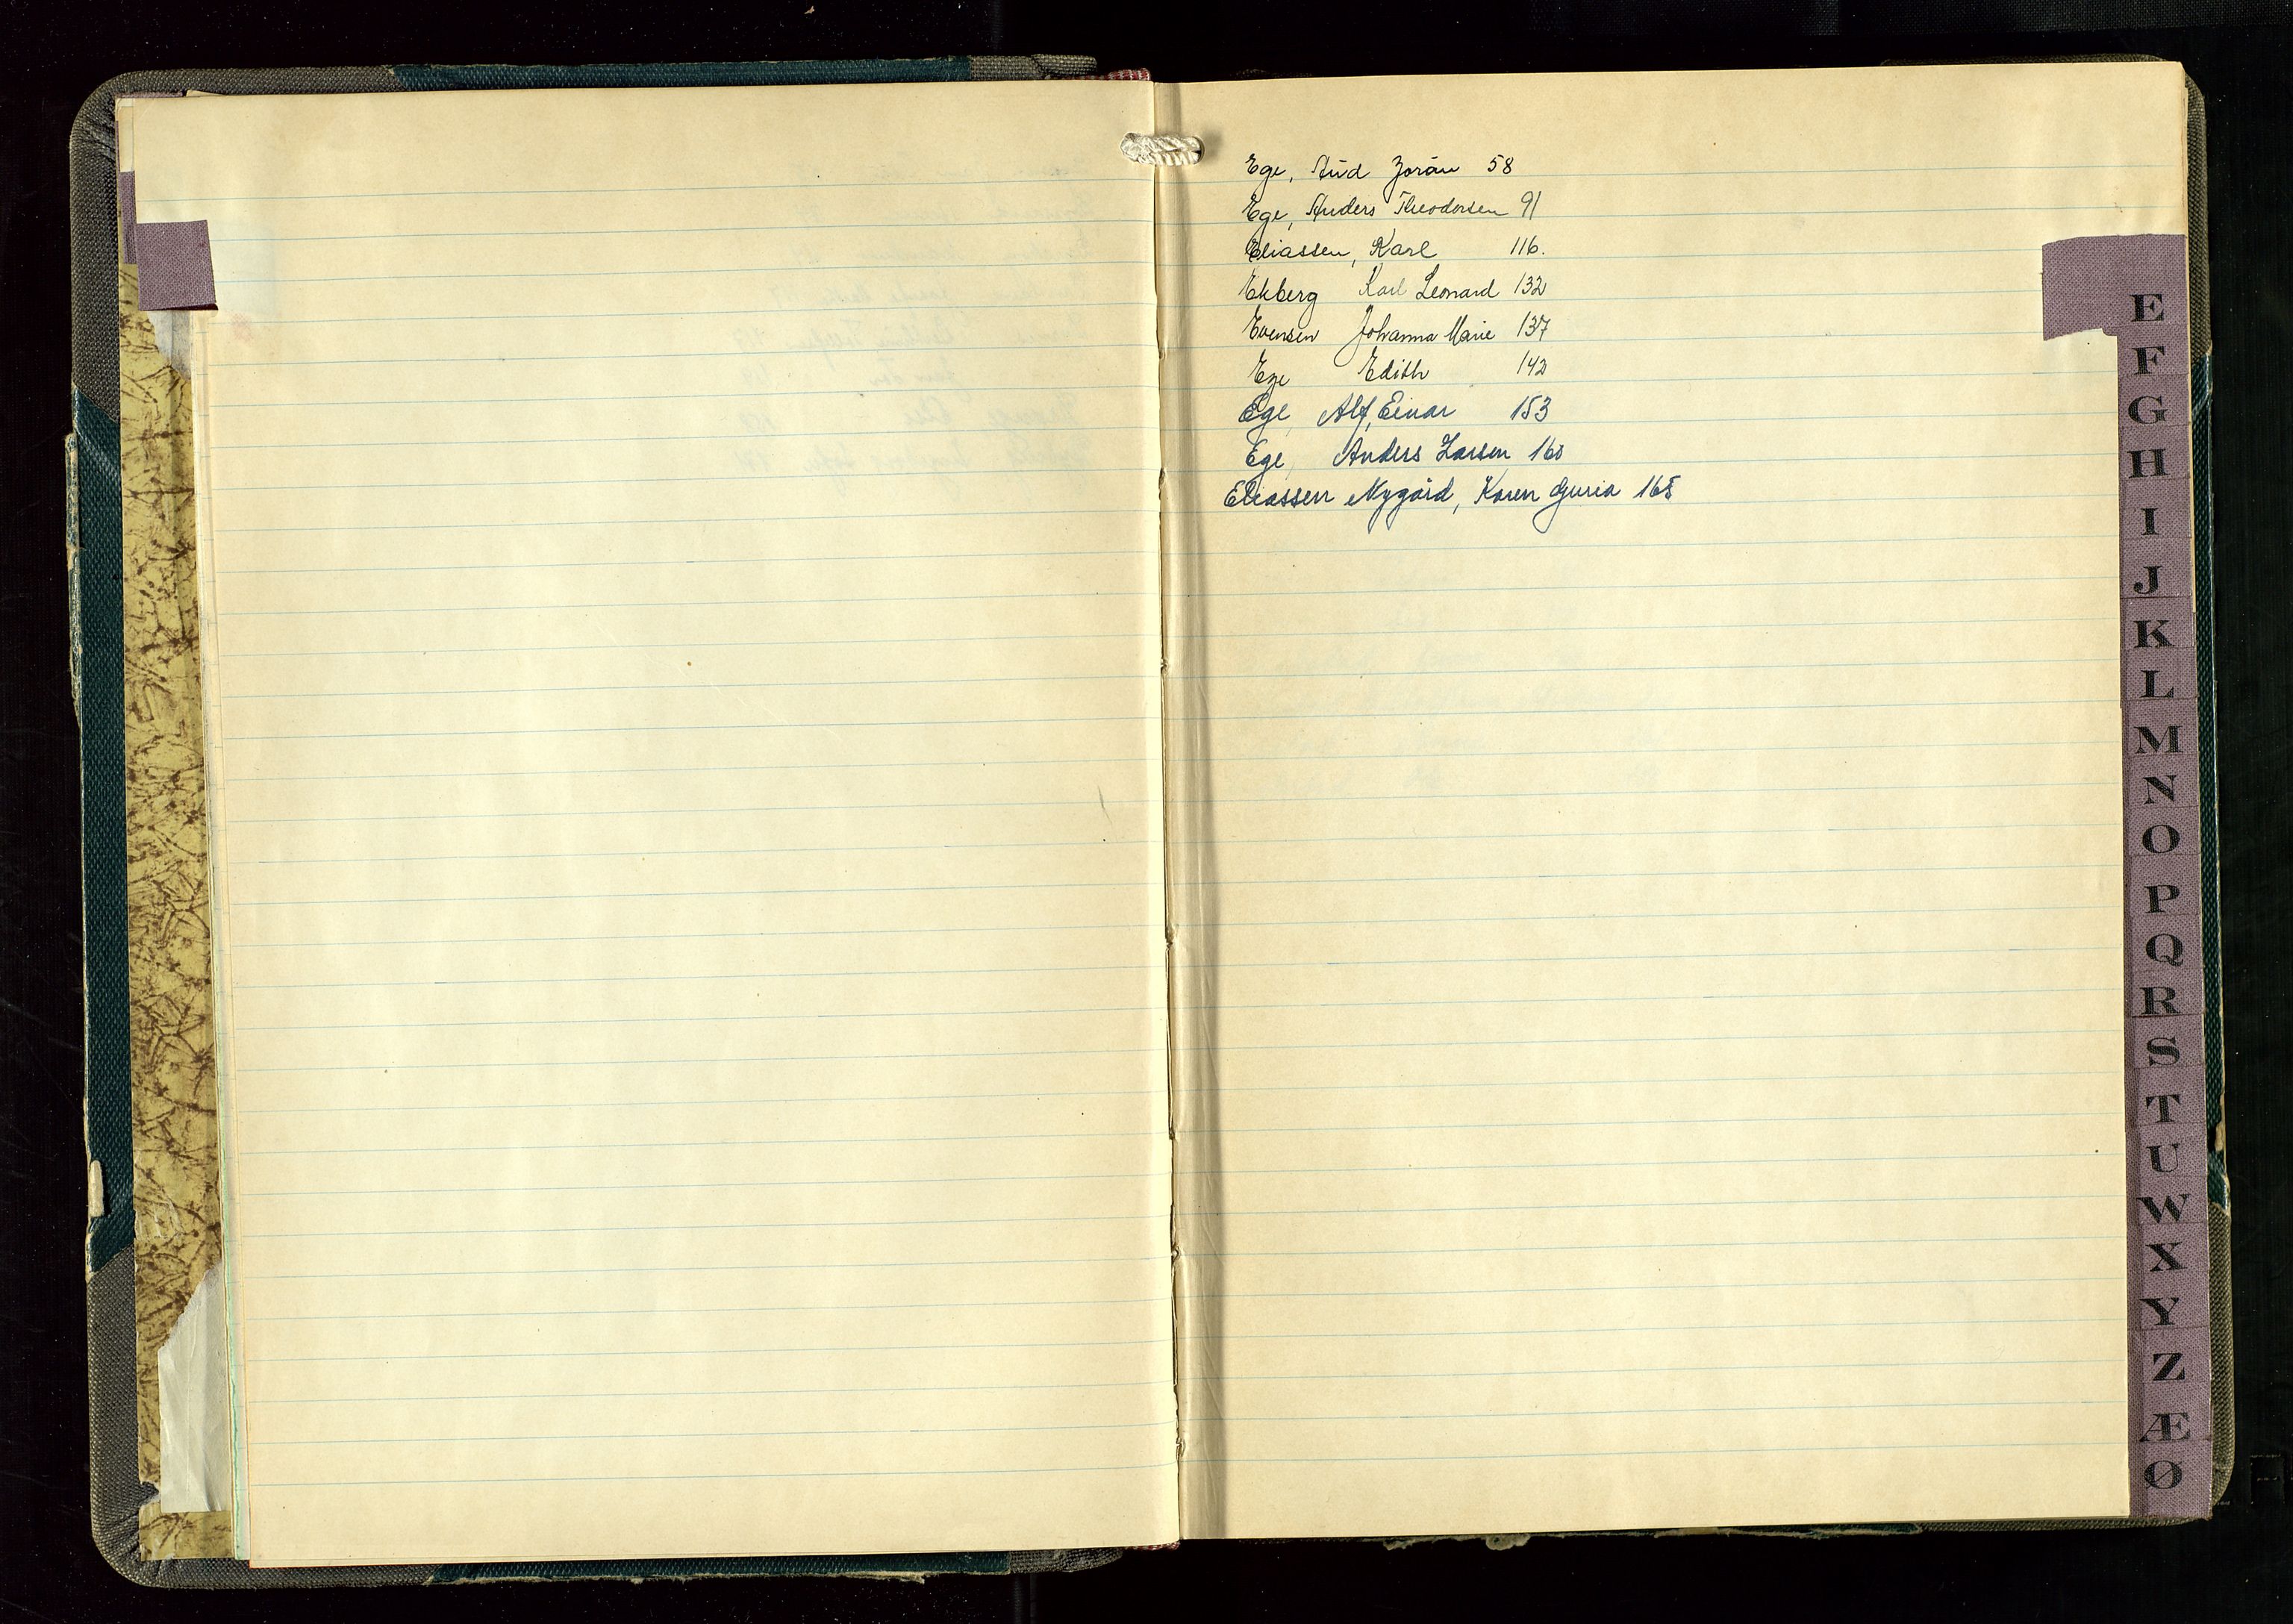 Ege, Aud Jorūn 58
Ege, Anders Theodorsen 91
Eliassen, Karl 116.
Ekberg Karl Leonard 132
Evensen Johanna Marie 137
Ege Edith 142
Ege, Alf, Einar 153
Ege, Anders Larsen 160
Eliassen Nygård, Karen Guria 165
E
F
G
H
I
J
K
L
M
N
O
P
Q
R
S
T
U
W
X
Y
Z
Æ
Ø